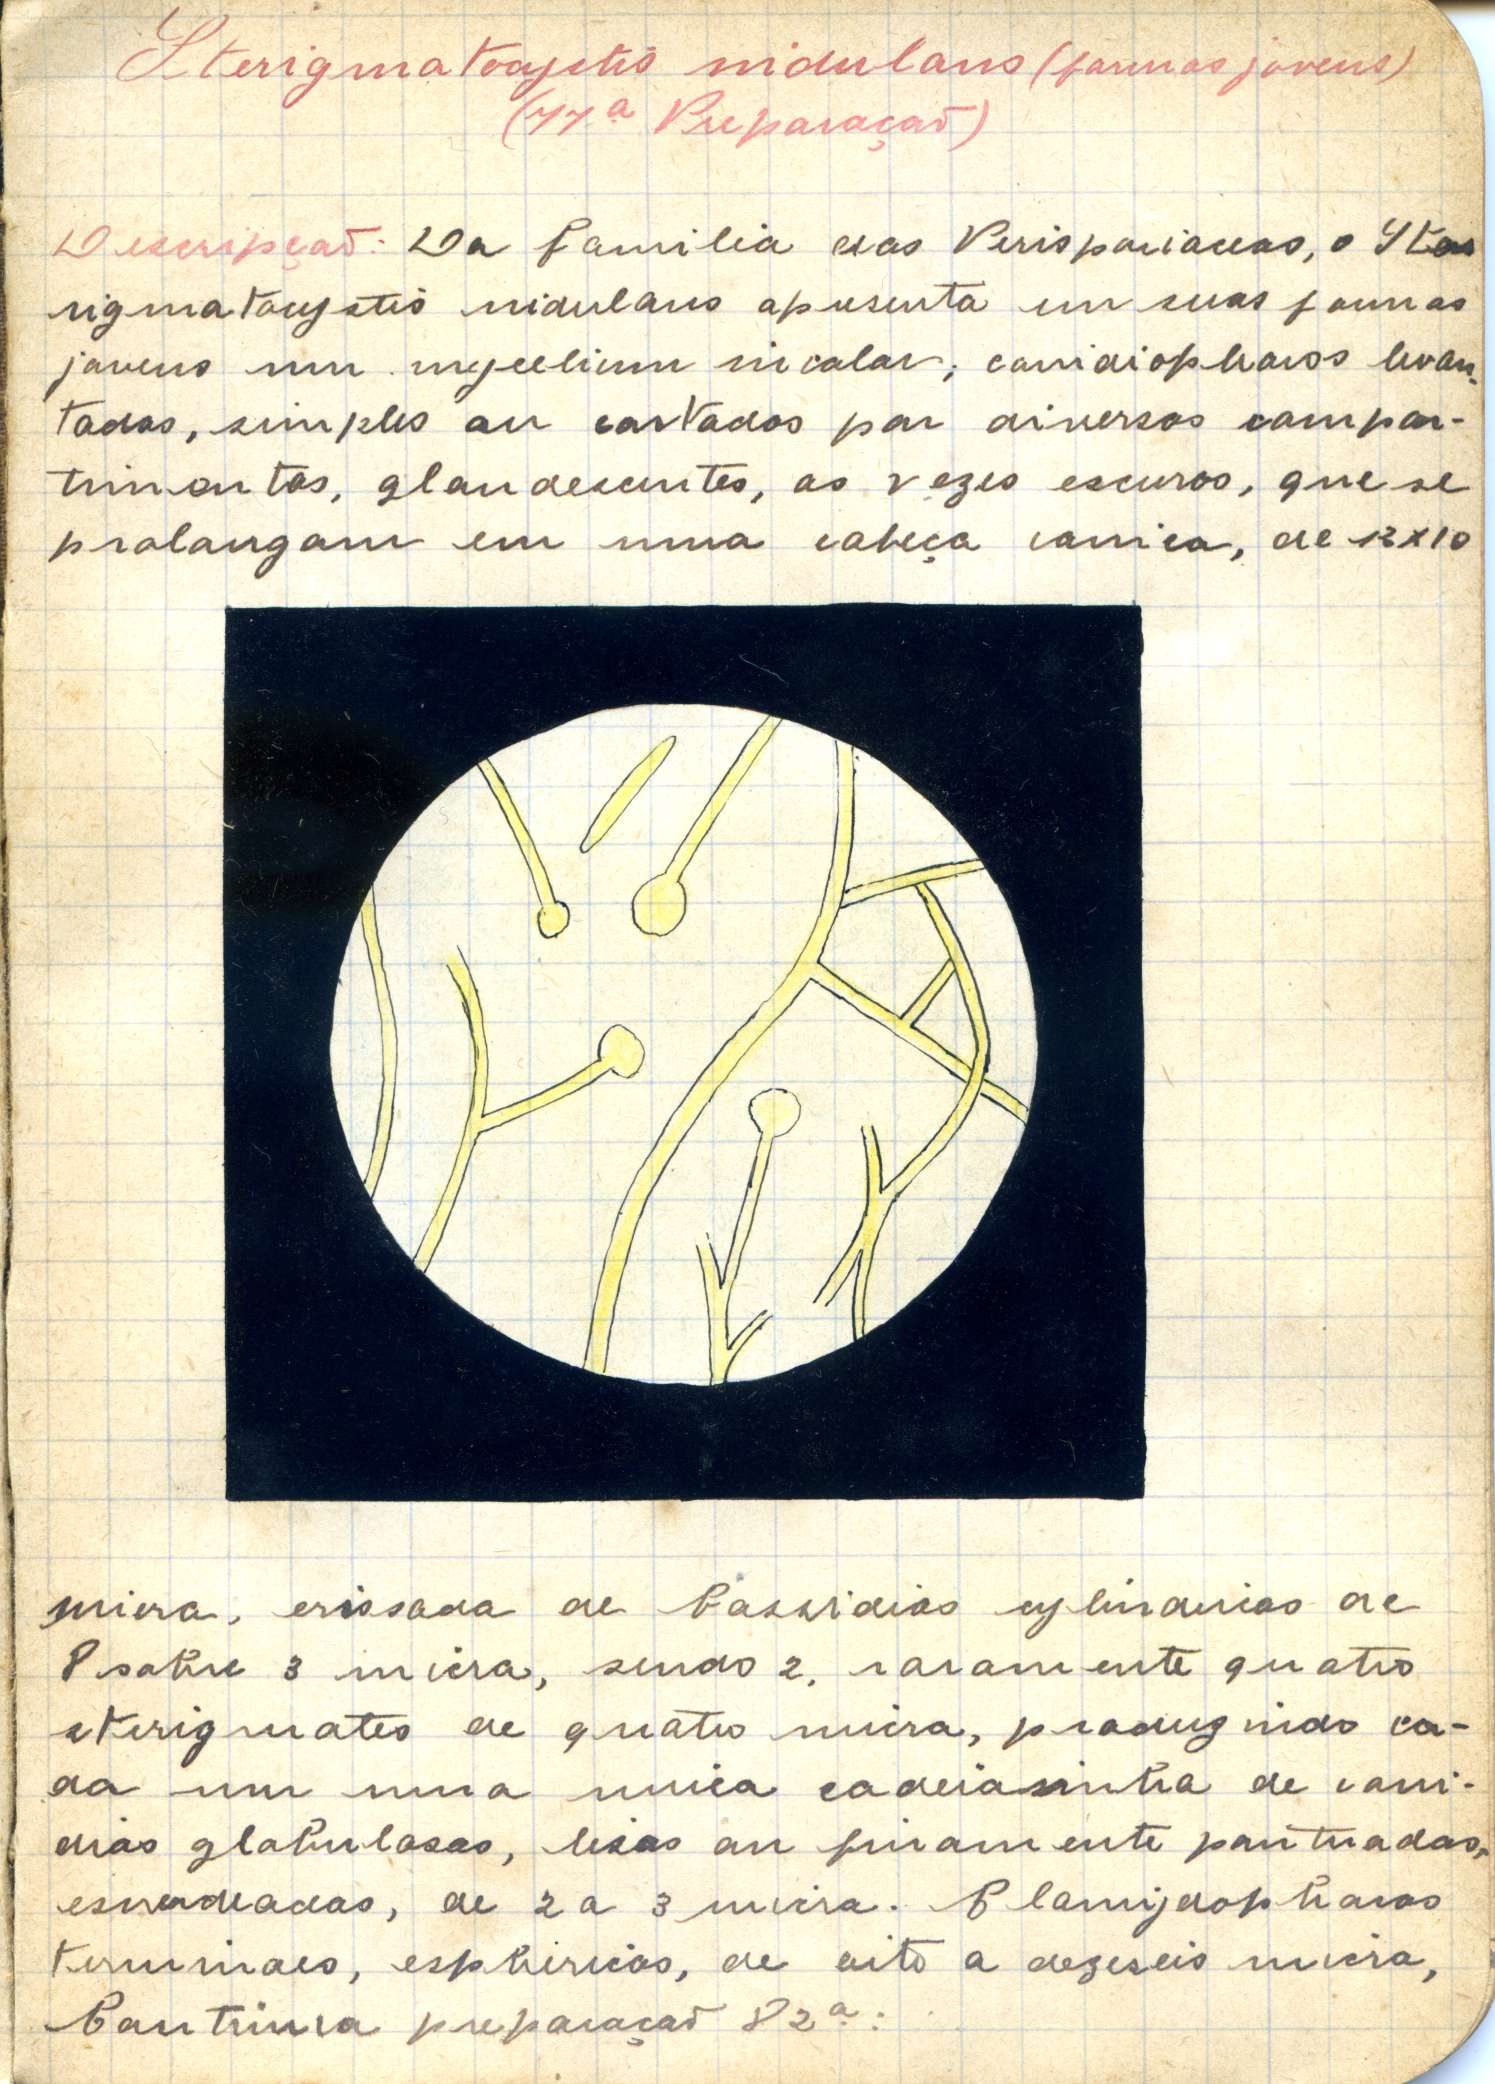 Sterigmatocystis nidulans (formas jovens)
(77ª Preparação)
Descripção: Da familia das Perisporiaceas, o Ste
rigmatocystis nidulans apresenta em suas formas
jovens um mycelium incolor; conidiophoros levan-
tados, simples ou cortados por diversos compar-
timentos, glandescentes, as vezes escuros, que se
prolongam em uma cabeça conica, de 12x10
micra, erissada de bassidios cylindricos de
8 sobre 3 micra, sendo 2, raramente quatro
sterigmates de quatro micra, produzindo ca-
da um uma unica cadeiasinha de coni-
dios globulosos, lisos ou finamente pontuados,
esverdeados, de 2 a 3 micra. Clamydophoros
terminaes, esphericos, de oito a dezeseis micra,
Continua preparação 82ª: